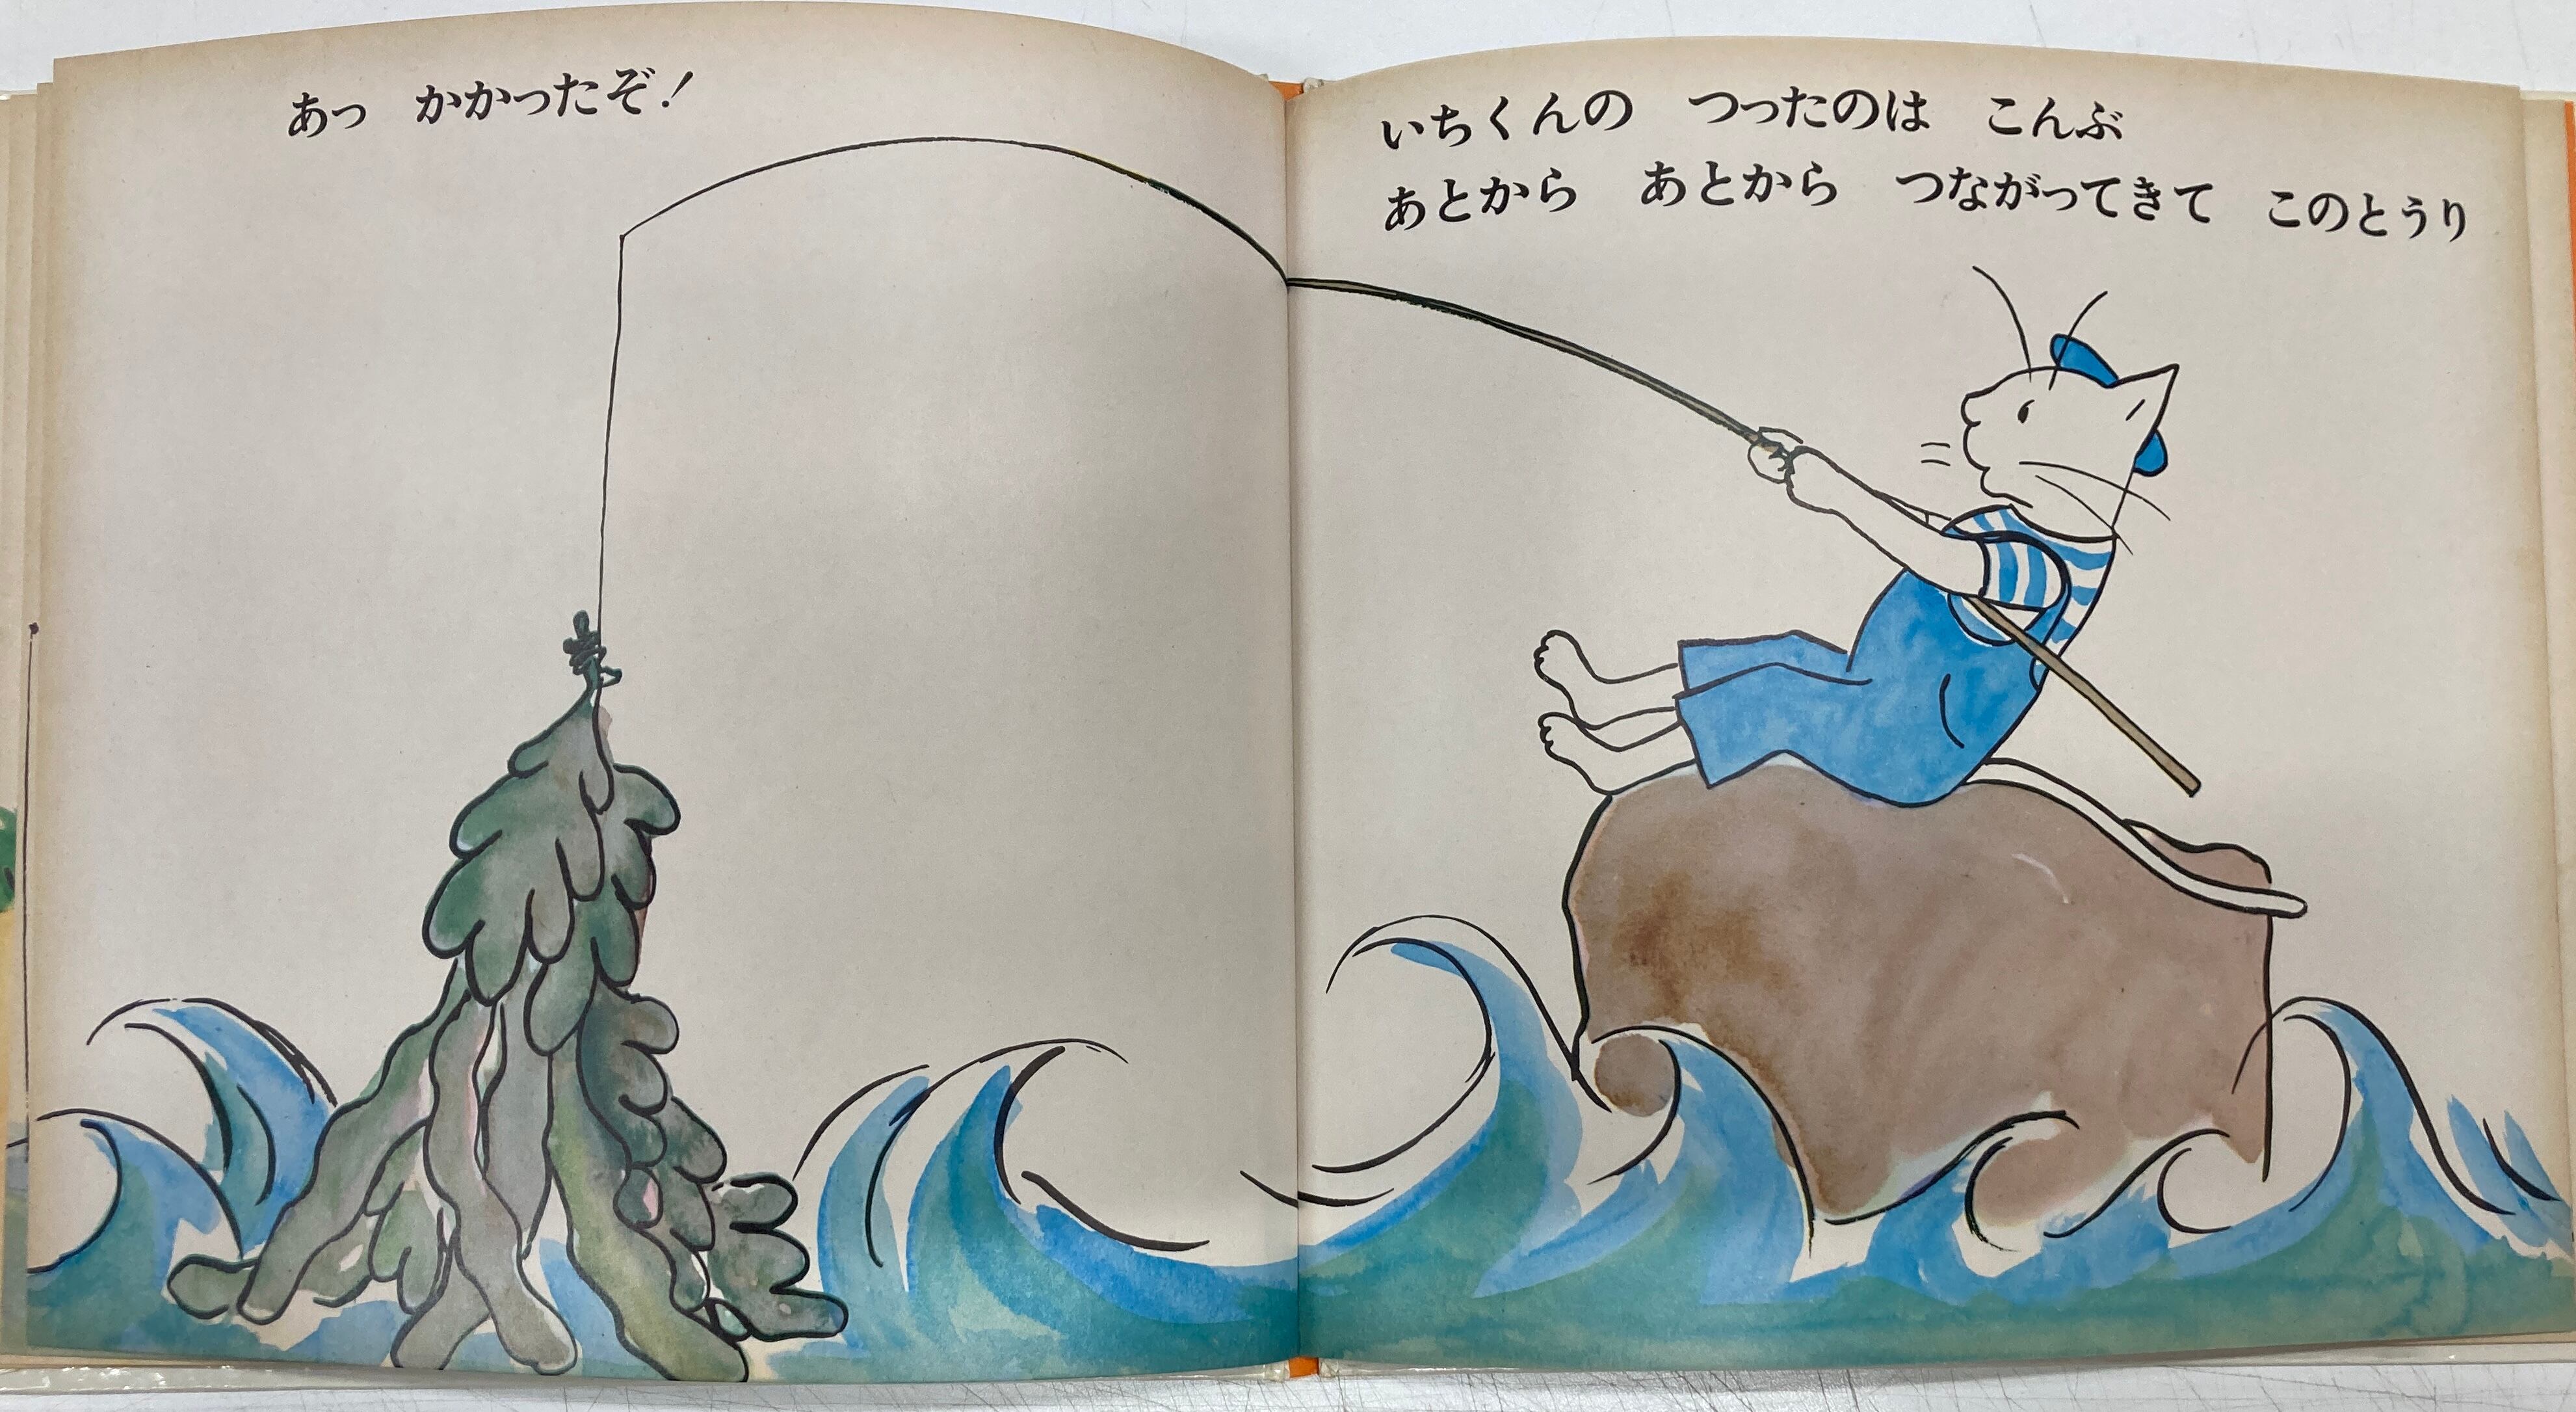 あっ　かかったぞ！
いちくんの　つったのは　こんぶ
あとから　あとから　つながってきて　このとうり